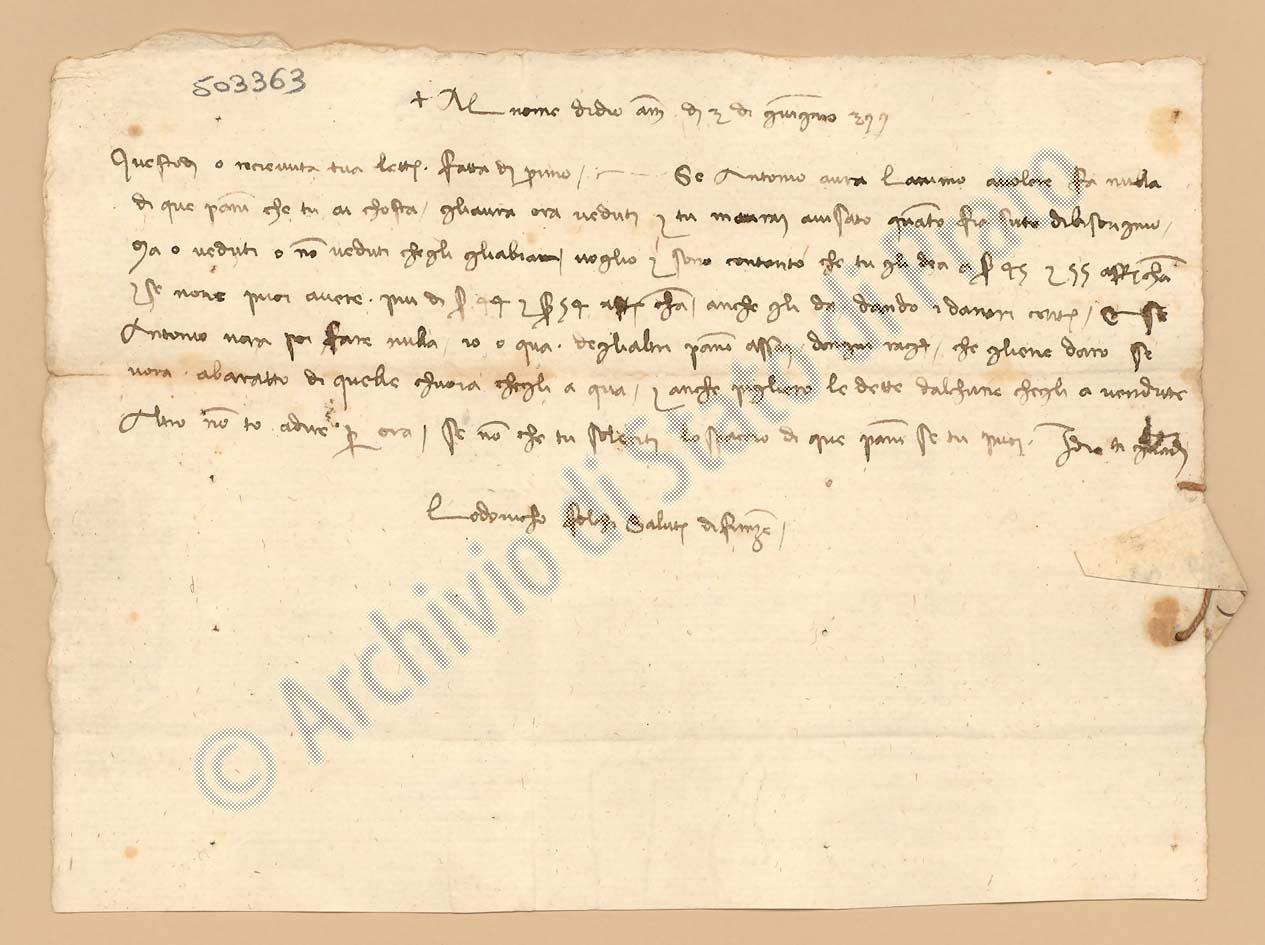 503363
+ Al nome didio am di 2 di gungno 399
Questodi o ricievuta tua lett fatta di primo / Se Antonio avra l'animo avolere fa nulla
di que panni che tu ai chosta / gliavra ora veduti e tu m avisato quanto fia suto dibisongnio /
Ma o veduti o no veduti chegli gliabia / voglio e sono contento che tu gli dea a 45 e 55
e se none puoi avere più di 44 e 54 anche gli da dando i danari cont / E se
Antonio vora poi fare nulla io o qua degli altri panni assai che gliene daro se
vora abaratto di quelle chuoia chegli a qua / e anche pigliero le dette dalchune chegli a vendute
Altro no to a dire per ora / se no che tu soleciti lo spaccio di que panni se tu puoi Idio ti ghuardi
Lodovicho salut di Firenze /
© Archivio di Stato di Prato